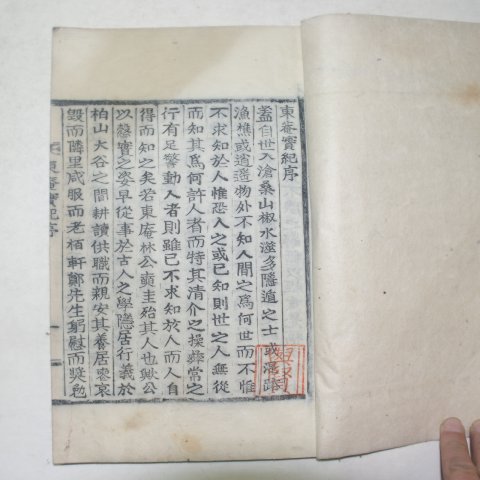 東菴實紀序
蓋自世入滄桑山椒水澨多隱遁之士或漁
漁樵或遊物外不知人間之爲何世而不惟
不求知於人惟恐人之或已知則世之人無從
而知其爲何許人者而特其淸介之操彝常之
行有足警動人者則雖已不求知於人而人自
得而知之矣若東庵林公奭圭殆其人也歟公
以馨寶之姿早從事於古人之學隱居行義於
柏山大谷之間耕讀供職而親安其養居憂哀
毁而隣里咸服而老栢軒鄭先生躬慰而奬勉
東菴實紀序